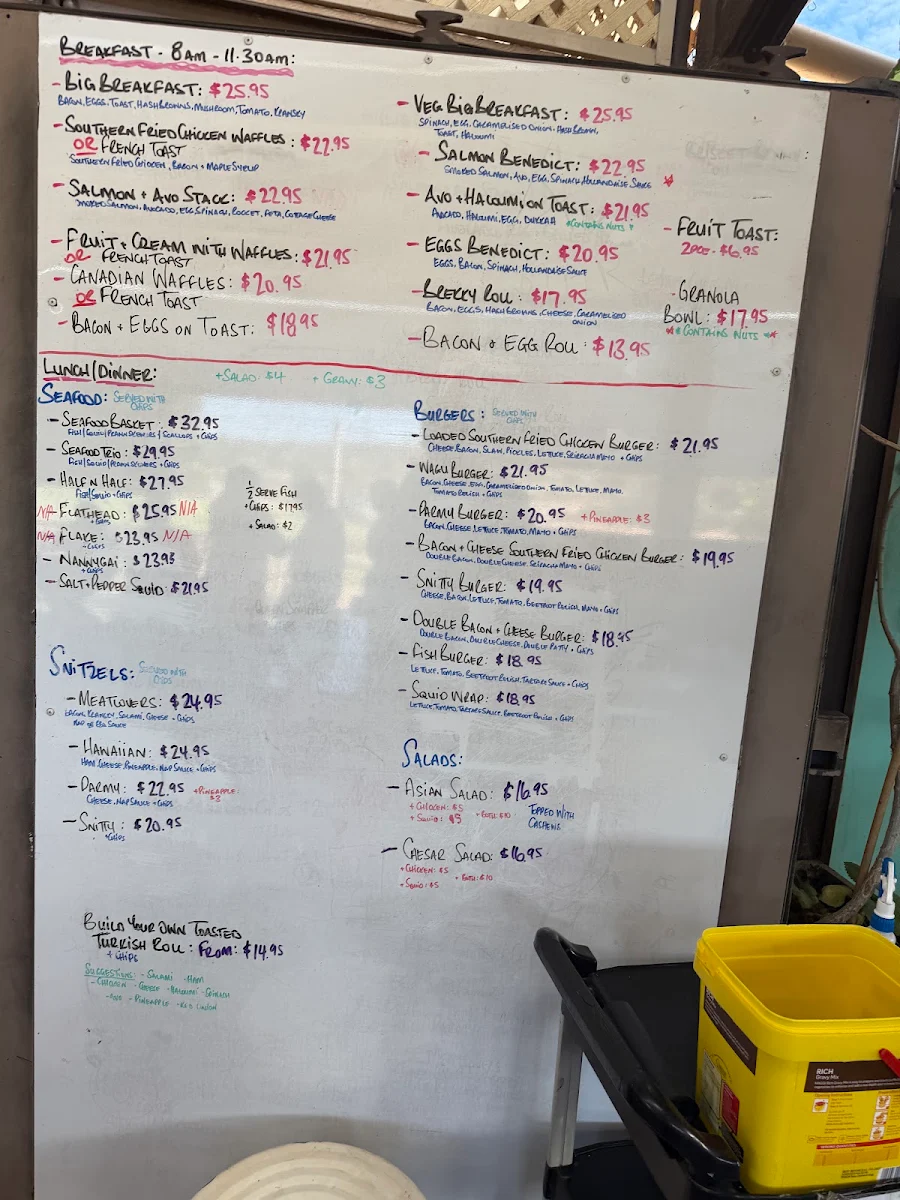 BREAKFAST - 8AM - 11.30AM:
- BIG BREAKFAST: $25.95
BACON, EGGS, TOAST, HASHBROWNS, MUSHROOM, TOMATO, KRANSKY
- SOUTHERN FRIED CHICKEN WAFFLES: $22.95
OR FRENCH TOAST
SOUTHERN FRIED CHICKEN, BACON + MAPLE SYRUP
- SALMON + AVO STACK: $22.95
SMOKED SALMON, AVOCADO, EGG, SPINACH, ROCKET, FETA, COTAGE CHEESE
- FRUIT + CREAM WITH WAFFLES: $21.95
OR FRENCH TOAST
- CANADIAN WAFFLES: $20.95
OR FRENCH TOAST
- BACON + EGGS ON TOAST: $18.95
- VEG BIG BREAKFAST: $25.95
SPINACH, EGG, CARAMELISED ONION, HASH BROWN,
TOAST, HALOUMI
- SALMON BENEDICT: $22.95
SMOKED SALMON, AVO, EGG, SPINACH, HOLLANDAISE SAUCE
- AVO + HALOUMI ON TOAST: $21.95
AVOCADO, HALOUMI, EGG, DUKKAH *CONTAINS NUTS*
- EGGS BENEDICT: $20.95
EGGS, BACON, SPINACH, HOLLANDAISE SAUCE
- BREKKY ROLL: $17.95
BACON, EGGS, HASHBROWNS, CHEESE, CARAMELISED
ONION
- BACON & EGG ROLL: $13.95
- FRUIT TOAST:
2PCE - $6.95
- GRANOLA
BOWL: $17.95
** CONTAINS NUTS **
LUNCH/DINNER: +SALAD: $4 + GRAVY: $3
SEAFOOD: SERVED WITH
CHIPS
- SEAFOOD BASKET: $32.95
FISH/SQUID/PRAWN SKEWERS/SCALLOPS + CHIPS
- SEAFOOD TRIO: $29.95
FISH/SQUID/PRAWN SKEWERS + CHIPS
- HALF N HALF: $27.95
FISH/SQUID + CHIPS
N/A - FLATHEAD: $25.95 N/A
+ CHIPS
N/A - FLAKE: $23.95 N/A
+ CHIPS
- NANNYGAI: $23.95
+ CHIPS
- SALT + PEPPER SQUID: $21.95
1/2 SERVE FISH
+ CHIPS: $17.95
+ SALAD: $2
SNITZELS: SERVED WITH
CHIPS
- MEATLOVERS: $24.95
BACON, KRANSKY, SALAMI, CHEESE + CHIPS
NAP OR BBQ SAUCE
- HAWAIIAN: $24.95
HAM, CHEESE, PINEAPPLE, NAP SAUCE + CHIPS
- PARMY: $22.95 +PINEAPPLE:
$3
CHEESE, NAP SAUCE + CHIPS
- SNITTY: $20.95
+ CHIPS
BUILD YOUR OWN TOASTED
TURKISH ROLL: FROM: $14.95
+ CHIPS
SUGGESTIONS: - SALAMI - HAM
- CHICKEN - CHEESE - HALOUMI - SPINACH
- PINEAPPLE - RED ONION
BURGERS: SERVED WITH
CHIPS
- LOADED SOUTHERN FRIED CHICKEN BURGER: $21.95
CHEESE, BACON, SLAW, PICKLES, LETTUCE, SRIRACHA MAYO + CHIPS
- WAGU BURGER: $21.95
BACON, CHEESE, EGG, CARAMELISED ONION, TOMATO, LETTUCE, MAYO,
TOMATO RELISH + CHIPS
- PARMY BURGER: $20.95 + PINEAPPLE: $3
BACON, CHEESE, LETTUCE, TOMATO, MAYO + CHIPS
- BACON + CHEESE SOUTHERN FRIED CHICKEN BURGER: $19.95
DOUBLE BACON, DOUBLE CHEESE, SRIRACHA MAYO + CHIPS
- SNITTY BURGER: $19.95
CHEESE, BACON, LETTUCE, TOMATO, BEETROOT RELISH, MAYO + CHIPS
- DOUBLE BACON + CHEESE BURGER: $18.95
DOUBLE BACON, DOUBLE CHEESE, DOUBLE PATTY + CHIPS
- FISH BURGER: $18.95
LETTUCE, TOMATO, BEETROOT RELISH, TARTARE SAUCE + CHIPS
- SQUID WRAP: $18.95
LETTUCE, TOMATO, TARTARE SAUCE, BEETROOT RELISH + CHIPS
SALADS:
- ASIAN SALAD: $16.95
+ CHICKEN: $5
+ SQUID: $5 + BOTH: $10
TOPPED WITH
CASHEWS
- CAESAR SALAD: $16.95
+ CHICKEN: $5
+ SQUID: $5 + BOTH: $10
RICH
Gravy Mix